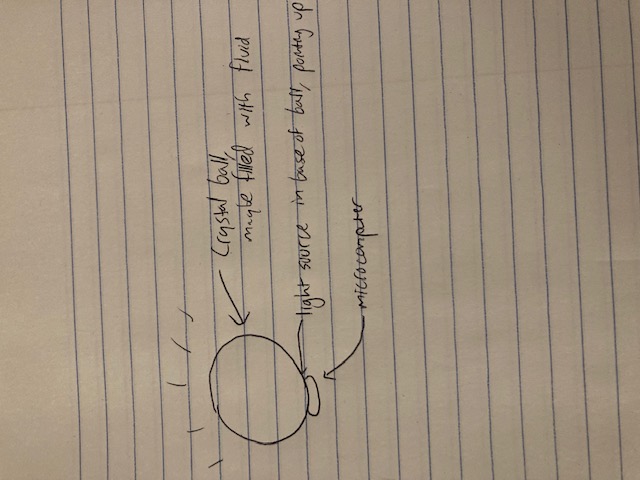 Crystal ball,
maybe filled with fluid
light source in base of ball, pointing up
microcomputer